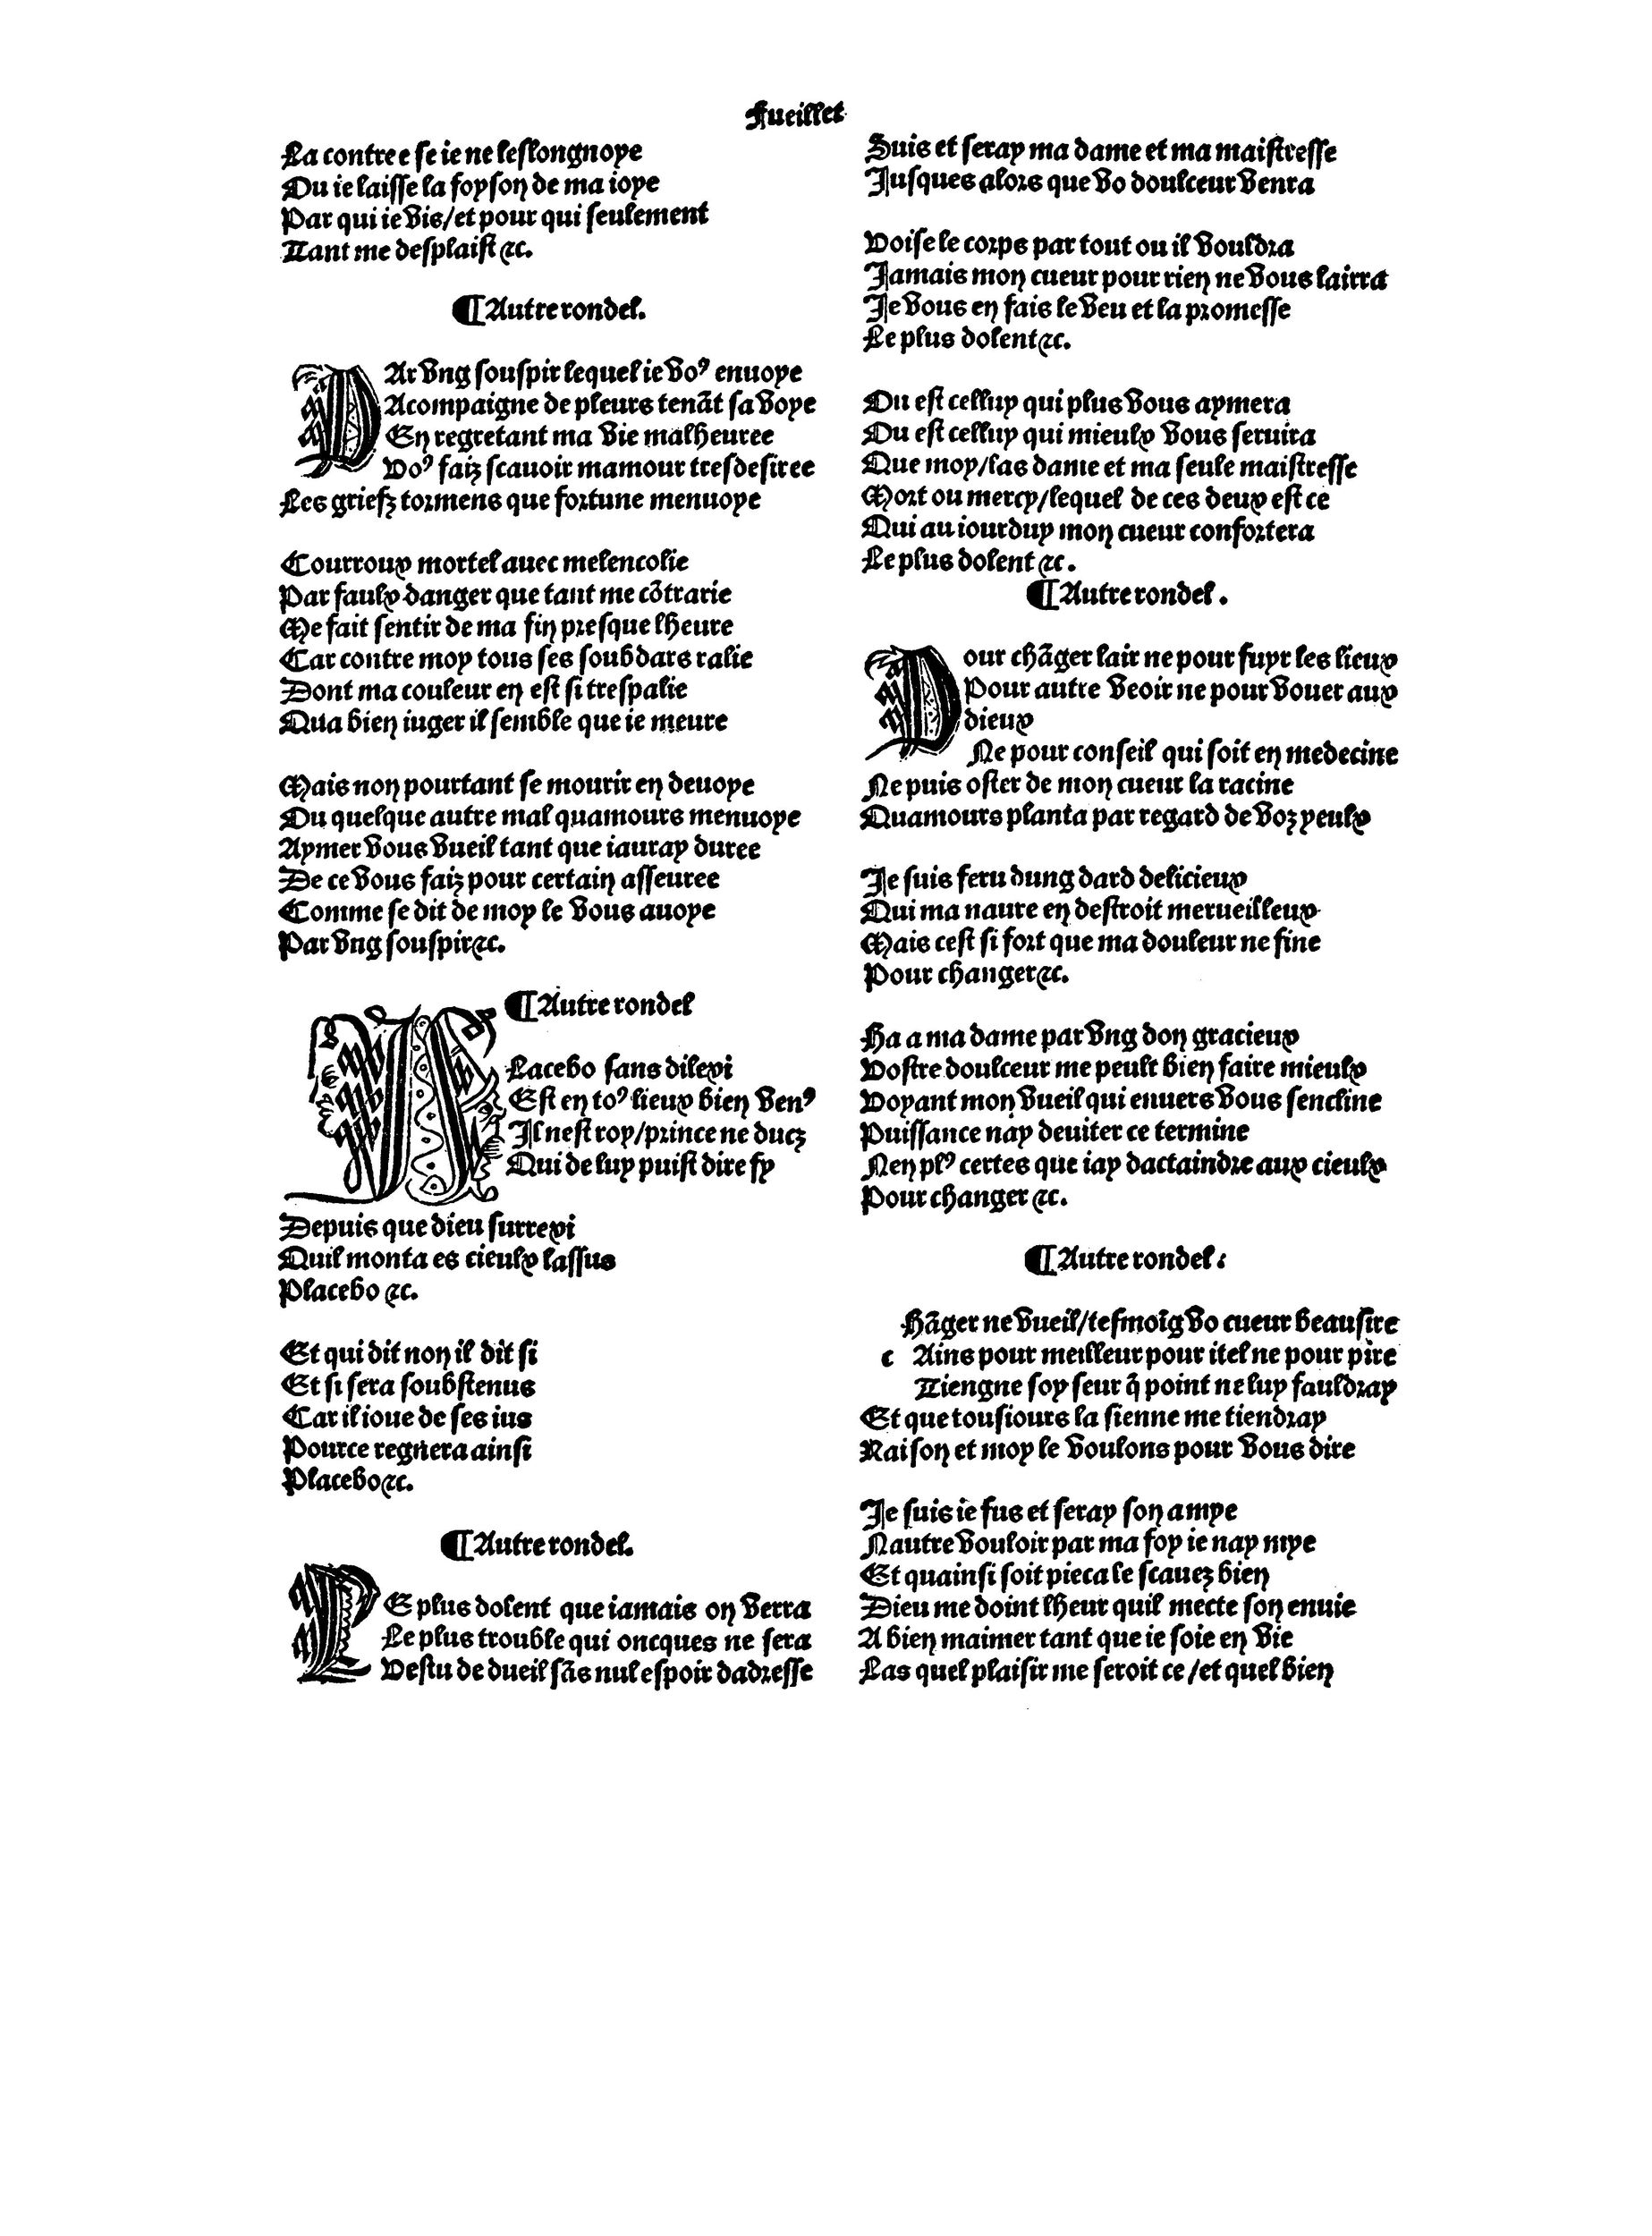 Fueillet
La contree se ie ne leslongnoye
Ou ie laisse la foyson de ma ioye
Par qui ie vis/et pour qui seulement
Tant me desplaist ⁊c.
¶Autre rondel.
PAr vng souspir lequel ie voꝰ enuoye
Acompaigne de pleurs tenãt sa voye
En regretant ma vie malheuree
Voꝰ faiz scauoir mamour tresdesiree
Les griefz tormens que fortune menuoye
Courroux mortel auec melencolie
Par faulx danger que tant me cõtrarie
Me fait sentir de ma fin presque lheure
Car contre moy tous ses soubdars ralie
Dont ma couleur en est si trespalie
Qua bien iuger il semble que ie meure
Mais non pourtant se mourir en deuoye
Ou quelque autre mal quamours menuoye
Aymer vous vueil tant que iauray duree
De ce vous faiz pour certain asseuree
Comme se dit de moy le vous auoye
Par vng souspir⁊c.
¶Autre rondel
PLacebo sans dilexi
Est en toꝰ lieux bien venꝰ
Il nest roy/prince ne ducz
Qui de luy puist dire fy
Depuis que dieu surrexi
Quil monta es cieulx lassus
Placebo ⁊c.
Et qui dit non il dit si
Et si sera soubstenus
Car il ioue de ses ius
Pource regnera ainsi
Placebo⁊c.
¶Autre rondel.
LE plus dolent que iamais on verra
Le plus trouble qui oncques ne sera
Vestu de dueil sãs nul espoir dadresse
Suis et seray ma dame et ma maistresse
Jusques alors que vo doulceur venra
Voise le corps par tout ou il vouldra
Jamais mon cueur pour rien ne vous lairra
Je vous en fais le veu et la promesse
Le plus dolent⁊c.
Ou est celluy qui plus vous aymera
Ou est celluy qui mieulx vous seruira
Que moy/las dame et ma seule maistresse
Mort ou mercy/lequel de ces deux est ce
Qui au iourduy mon cueur confortera
Le plus dolent ⁊c.
¶Autre rondel.
Pour chãger lair ne pour fuyr les lieux
Pour autre veoir ne pour vouer aux
dieux
Ne pour conseil qui soit en medecine
Ne puis oster de mon cueur la racine
Quamours planta par regard de voz yeulx
Je suis feru dung dard delicieux
Qui ma naure en destroit merueilleux
Mais cest si fort que ma douleur ne fine
Pour changer⁊c.
Ha a ma dame par vng don gracieux
Vostre doulceur me peult bien faire mieulx
Voyant mon vueil qui enuers vous sencline
Puissance nay deuiter ce termine
Nen plꝰ certes que iay dactaindre aux cieulx
Pour changer ⁊c.
¶Autre rondel:
c Hãger ne vueil/tesmoĩg vo cueur beausire
Ains pour meilleur pour itel ne pour pire
Tiengne soy seur q̃ point ne luy fauldray
Et que tousiours la sienne me tiendray
Raison et moy le voulons pour vous dire
Je suis ie fus et seray son amye
Nautre vouloir par ma foy ie nay mye
Et quainsi soit pieca le scauez bien
Dieu me doint lheur quil mecte son enuie
A bien maimer tant que ie soie en vie
Las quel plaisir me seroit ce/et quel bien